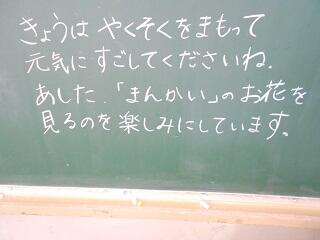 きょうは やくそくをまもって
元気に すごしてくださいね.
あした.「まんかい」のお花を
見るのを楽しみにしています。